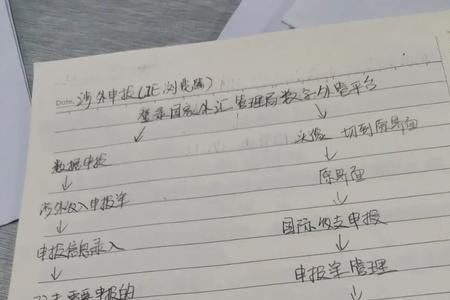 Date.
涉外申报(IE浏览器)
登录国家外汇管理局数字外管平台
数据申报
涉外收入申报单
申报信息录入
头像 切到原界面
原界面
国际收支申报
申报单管理
需要申报的